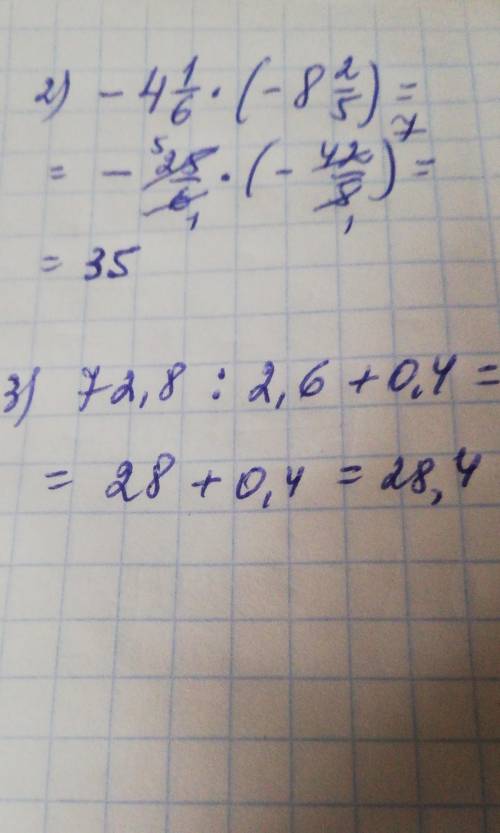 2) - 4 1/6 · (- 8 2/5) =
= - 25/6 · (- 42/5) =
= 35
3) 72,8 : 2,6 + 0,4 =
= 28 + 0,4 = 28,4